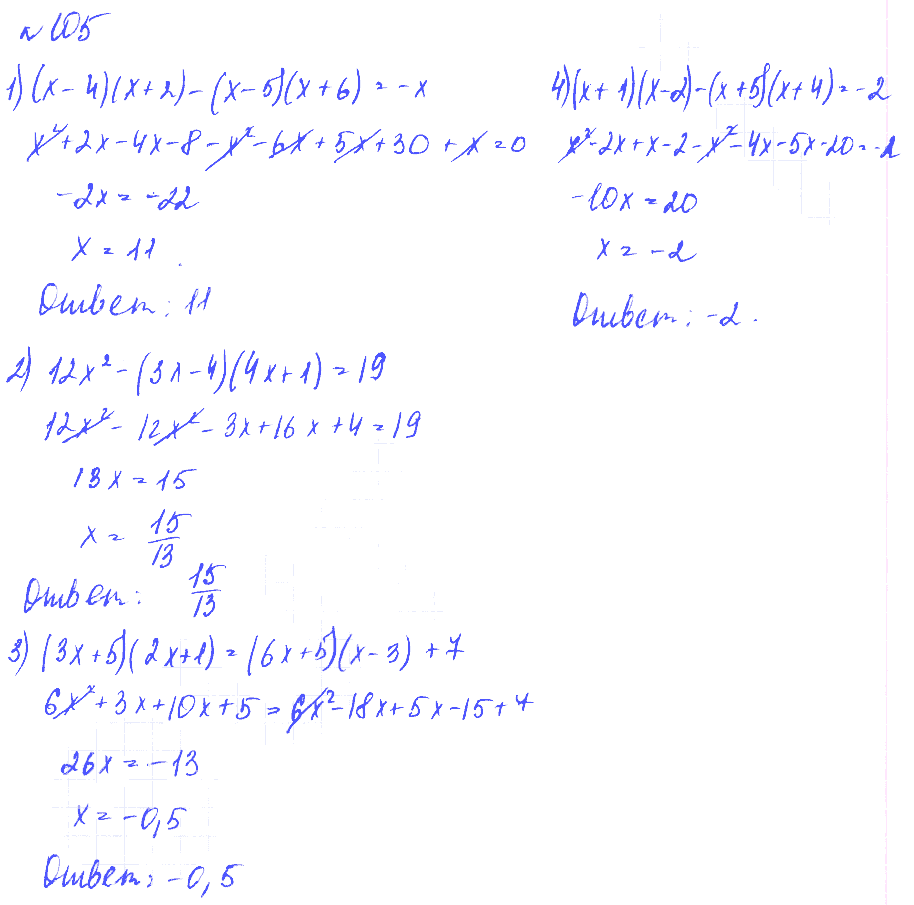 № 105
1) (x - 4)(x + 2) - (x - 5)(x + 6) = -x
x² + 2x - 4x - 8 - x² - 6x + 5x + 30 + x = 0
-2x = -22
x = 11.
Ответ: 11
2) 12x² - (3x - 4)(4x + 1) = 19
12x² - 12x² - 3x + 16x + 4 = 19
13x = 15
x = 15/13
Ответ: 15/13
3) (3x + 5)(2x + 1) = (6x + 5)(x - 3) + 7
6x² + 3x + 10x + 5 = 6x² - 18x + 5x - 15 + 7
26x = -13
x = -0,5
Ответ: -0,5
4) (x + 1)(x - 2) - (x + 5)(x + 4) = -2
x² - 2x + x - 2 - x² - 4x - 5x - 20 = -2
-10x = 20
x = -2
Ответ: -2.